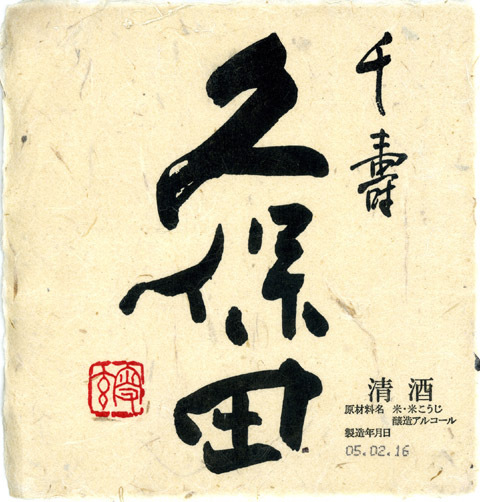 千壽
久保田
清酒
原材料名 米・米こうじ
醸造アルコール
製造年月日
05.02.16